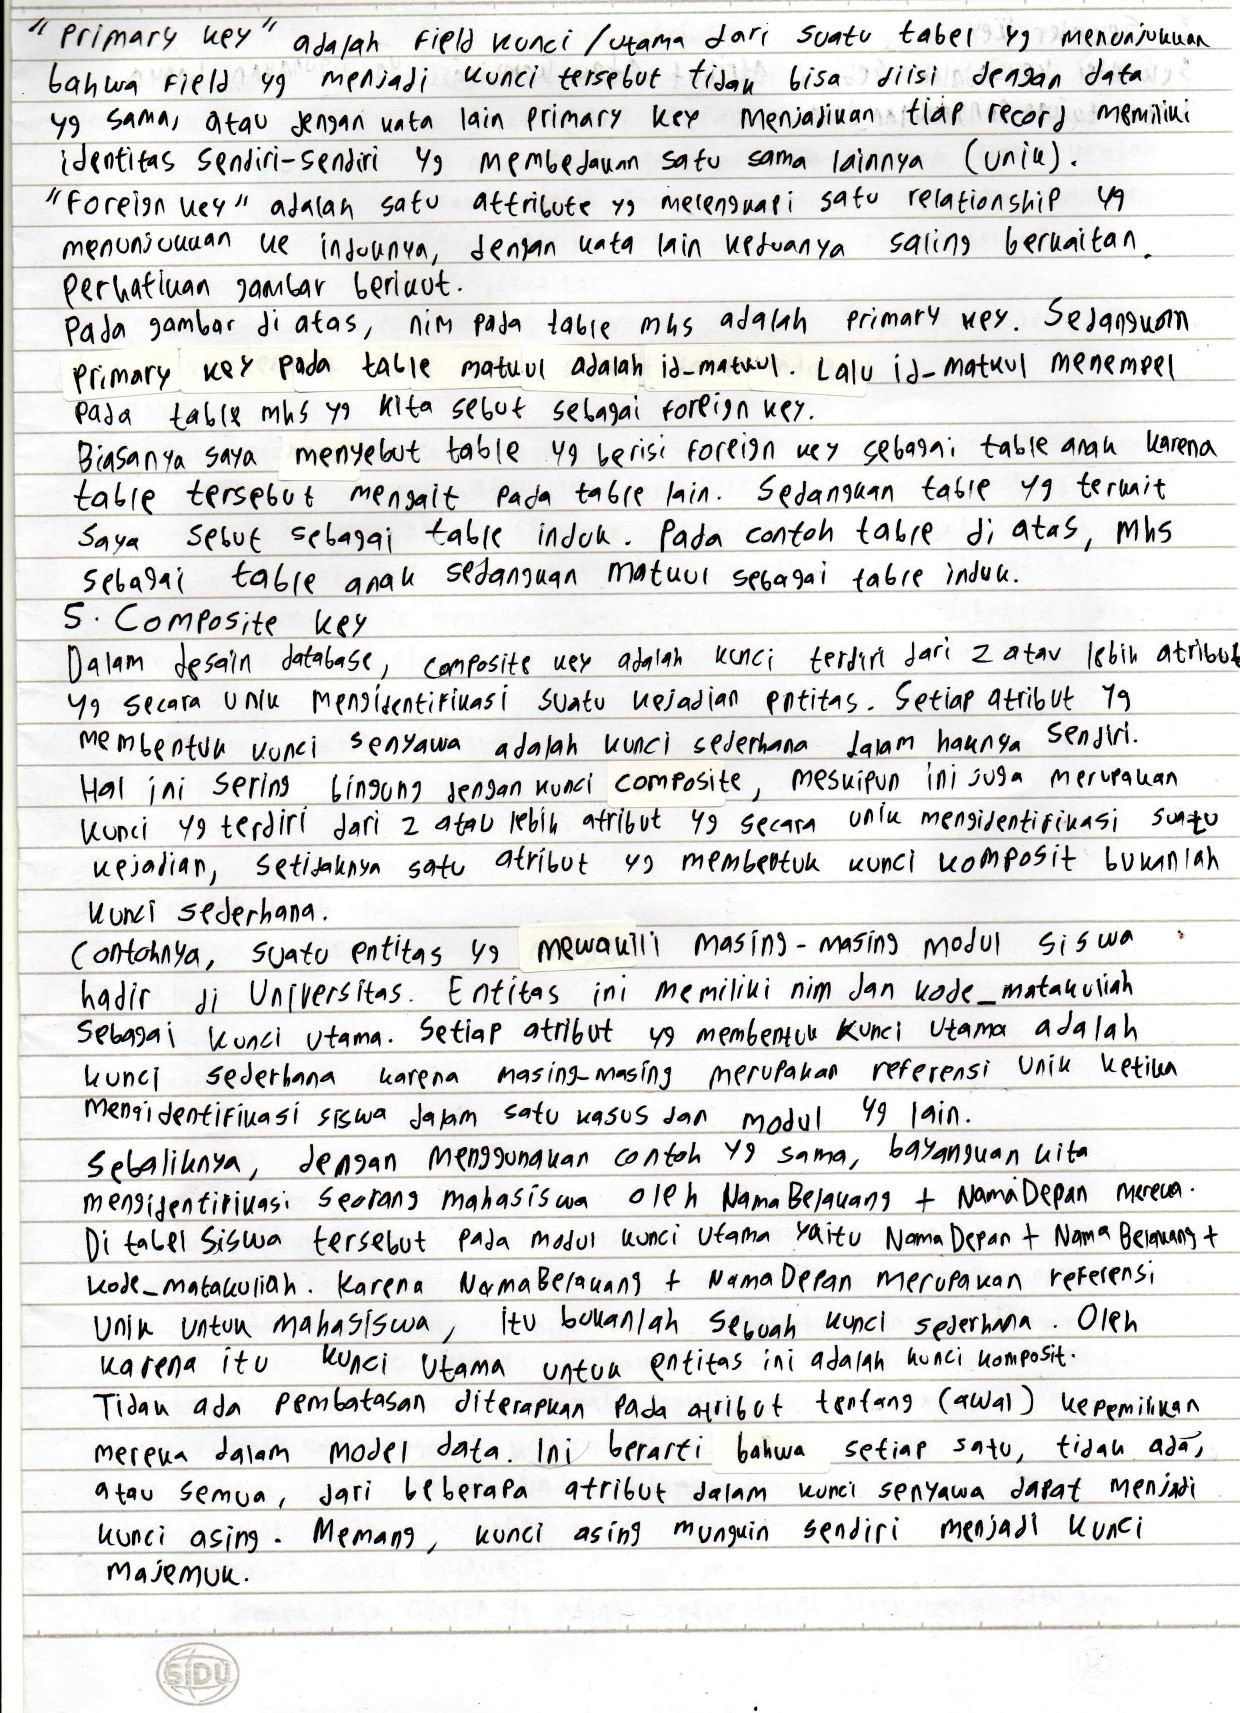 "Primary key" adalah field kunci/utama dari suatu tabel yg menunjukkan
bahwa field yg menjadi kunci tersebut tidak bisa diisi dengan data
yg sama, atau dengan kata lain primary key menjadikan tiap record memiliki
identitas sendiri-sendiri yg membedakan satu sama lainnya (unik).
"Foreign key" adalah satu attribute yg melengkapi satu relationship yg
menunjukkan ke induknya, dengan kata lain keduanya saling berkaitan.
Perhatikan gambar berikut.
Pada gambar di atas, nim pada table mhs adalah primary key. Sedangkan
primary key pada table matkul adalah id_matkul. Lalu id_matkul menempel
pada table mhs yg kita sebut sebagai foreign key.
Biasanya saya menyebut table yg berisi foreign key sebagai table anak karena
table tersebut mengait pada table lain. Sedangkan table yg terkait
saya sebut sebagai table induk. Pada contoh table di atas, mhs
sebagai table anak sedangkan matkul sebagai table induk.
5. Composite key
Dalam desain database, composite key adalah kunci terdiri dari 2 atau lebih atribut
yg secara unik mengidentifikasi suatu kejadian entitas. Setiap atribut yg
membentuk kunci senyawa adalah kunci sederhana dalam haknya sendiri.
Hal ini sering bingung dengan kunci composite, meskipun ini juga merupakan
kunci yg terdiri dari 2 atau lebih atribut yg secara unik mengidentifikasi suatu
kejadian, setidaknya satu atribut yg membentuk kunci komposit bukanlah
kunci sederhana.
Contohnya, suatu entitas yg mewakili masing-masing modul siswa
hadir di Universitas. Entitas ini memiliki nim dan kode_matakuliah
sebagai kunci utama. Setiap atribut yg membentuk kunci utama adalah
kunci sederhana karena masing-masing merupakan referensi unik ketika
mengidentifikasi siswa dalam satu kasus dan modul yg lain.
Sebaliknya, dengan menggunakan contoh yg sama, bayangkan kita
mengidentifikasi seorang mahasiswa oleh NamaBelakang + NamaDepan mereka.
Di tabel siswa tersebut pada modul kunci utama yaitu NamaDepan + NamaBelakang +
kode_matakuliah. Karena NamaBelakang + NamaDepan merupakan referensi
unik untuk mahasiswa, itu bukanlah sebuah kunci sederhana. Oleh
karena itu kunci utama untuk entitas ini adalah kunci komposit.
Tidak ada pembatasan diterapkan pada atribut tentang (awal) kepemilikan
mereka dalam model data. Ini berarti bahwa setiap satu, tidak ada,
atau semua, dari beberapa atribut dalam kunci senyawa dapat menjadi
kunci asing. Memang, kunci asing mungkin sendiri menjadi kunci
majemuk.
SIDU